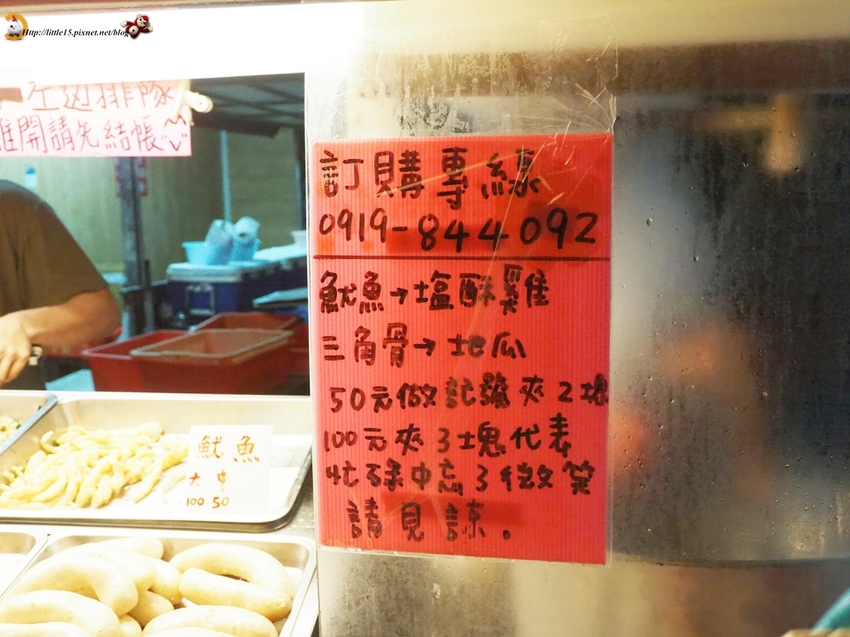 Http://little15.pixnet.net/blog
左邊排隊
離開請先結帳
訂購專線
0919-844092
魷魚→塩酥雞
三角骨→地瓜
50元做記錄夾2塊
100元夾3塊代表
忙碌中忘了微笑
請見諒.
魷魚
大 中
100 50